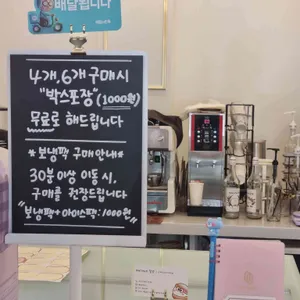 배달됩니다
4개, 6개 구매시
"박스포장" (1000원)
무료로 해드립니다
* 보냉팩 구매안내 *
30분 이상 이동 시,
구매를 권장드립니다
"보냉팩+아이스팩:1000원"